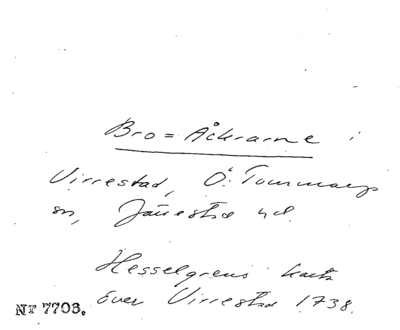 Bro=Åckrarne i
Virrestad, Ö. Tommarps
sn, Järrestad hd.
Hesselgrens karta
över Virrestad 1738.
Nr 7703.